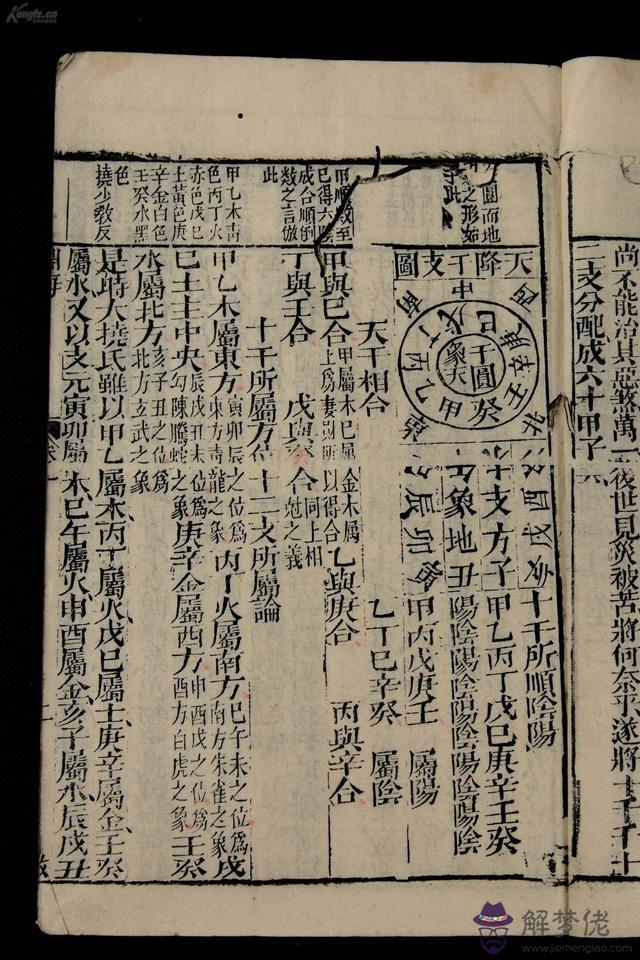 Kongfz.cn
尚不能治其惡煞萬一後世見災被苦將何奈乎遂將十干十
二支分配成六十甲子
天降干支圖
中
北
戊
己
壬
癸
甲
乙
丙
丁
干圓
象天
支方
象地
子
丑
卯
辰
酉
戌
十干所順陰陽
甲乙丙丁戊己庚辛壬癸
陽陰陽陰陽陰陽陰陽陰
甲丙戊庚壬 屬陽
乙丁己辛癸 屬陰
天干相合
甲與己合 甲屬木己屬 土為妻財所以得合
乙與庚合
丙與辛合
丁與壬合
戊與癸合 同上相尅之義
十干所屬方位 十二支所屬論
甲乙木屬東方 寅卯辰之位為 東方青龍之象 丙丁火屬南方 巳午未之位為 南方朱雀之象 戊
己土主中央 辰戌丑未位為 勾陳螣蛇之象 庚辛金屬西方 申酉戌之位為 西方白虎之象 壬癸
水屬北方 亥子丑之位為 北方玄武之象
是時大撓氏雖以甲乙屬木丙丁屬火戊己屬土庚辛屬金壬癸
屬水又以支元寅卯屬木巳午屬火申酉屬金亥子屬水辰戌丑
圓而地
之形如
此
甲順數至
己得六陰
成合順倒
數之言倣
此
甲乙木青
色丙丁火
赤色戊己
土黃色庚
辛金白色
壬癸水黑
色
撓少教反
淵海
卷一
二
解梦佬
www.jiemenglao.com